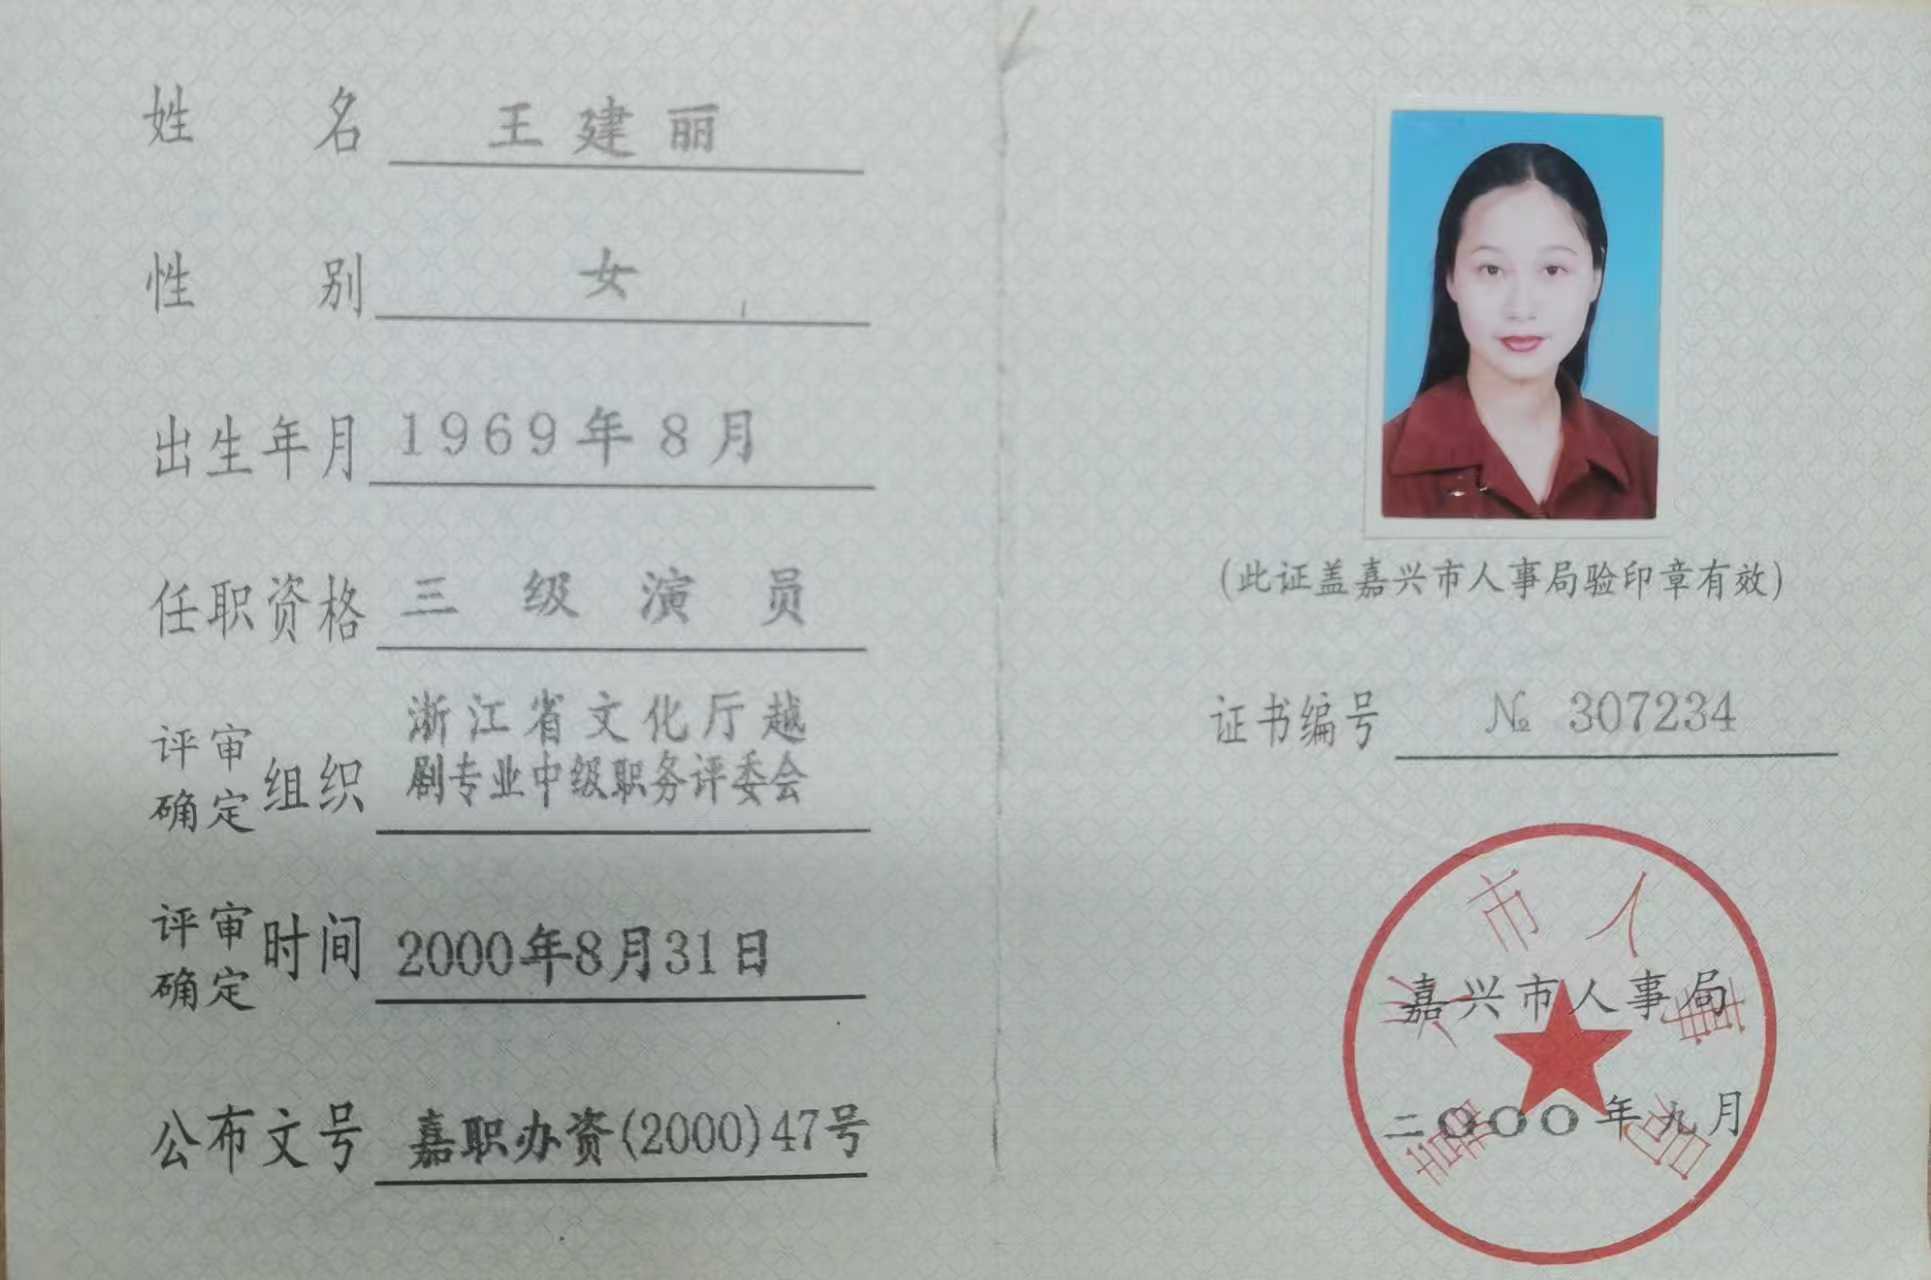 姓名 王建丽
性别 女
出生年月 1969年8月
任职资格 三级演员
评审确定组织 浙江省文化厅越
剧专业中级职务评委会
评审确定时间 2000年8月31日
公布文号 嘉职办资(2000)47号
(此证盖嘉兴市人事局验印章有效)
证书编号 № 307234
嘉兴市人事局
嘉兴市人事局
二〇〇〇年九月